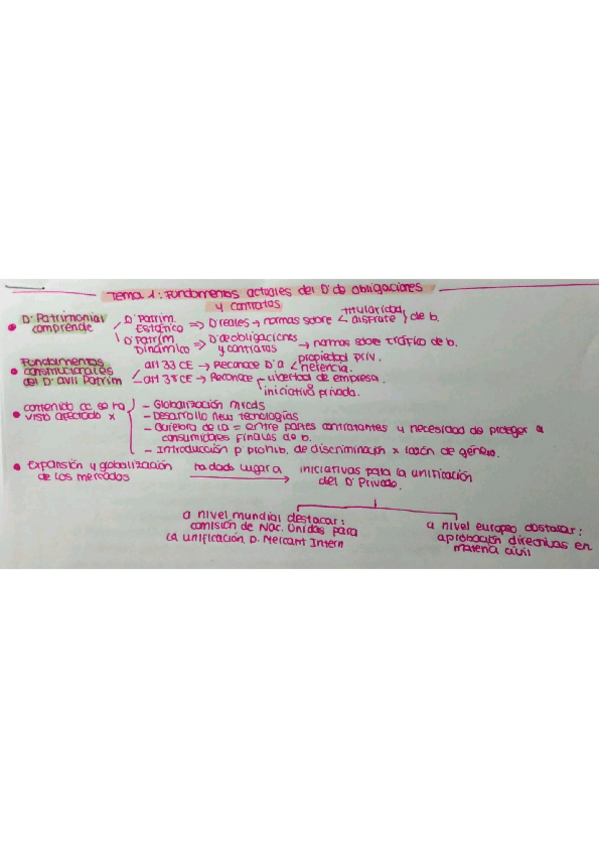 Tema 1: Fundamentos actuales del Dº de obligaciones
y contratos
D. Patrimonial
comprende
Dº Patrim.
Estático => D reales → normas sobre titularidad
disfrute } de b.
Dº Patrim.
Dinámico => Dº de obligaciones
y contratos → normas sobre tráfico de b.
Fundamentos
constitucionales
del D. civil Patrim
art 33 CE → Reconoce D a propiedad priv.
herencia.
art 38 CE → Reconoce libertad de empresa.
iniciativa privada.
contenido CC se ha
visto afectado x
- Globalización mrcds
- Desarrollo new tecnologías
- Quiebra de la = entre partes contratantes y necesidad de proteger a
consumidores finales de b.
- Introducción p prohib. de discriminación x razón de género.
Expansión y globalización
de los mercados
ha dado lugar a
iniciativas para la unificación
del D Privado.
a nivel mundial destacar:
comisión de Nac. Unidas para
la unificación D. Mercant Intern
a nivel europeo destacar:
aprobación directivas en
materia civil